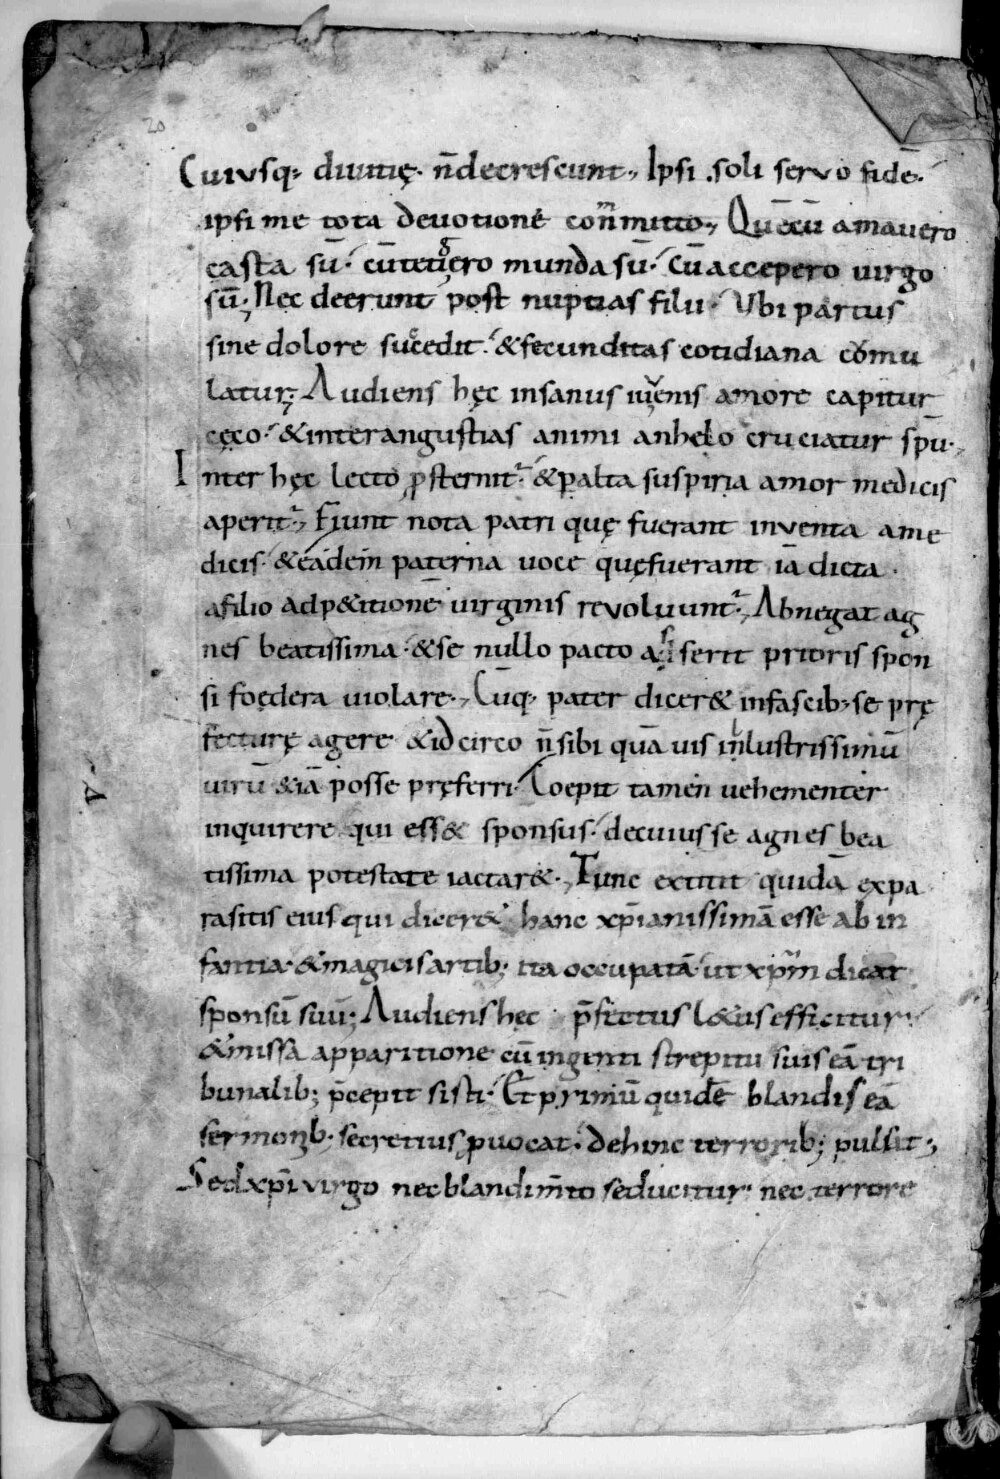 20
Cuiusq· diuitię· n̄ decrescunt·, Ipsi soli seruo fidē·
ipsi me tota deuotione committo·, Quē cū amauero
casta sū· cū tetigero munda sū· Cū accepero uirgo
sū; Nec deerunt post nuptias filii· Vbi partus
sine dolore succedit· & fecunditas cotidiana cōmu
latur; Audiens hęc insanus iuuenis amore capitur
cęco· & inter angustias animi anhelo cruciatur spū·,
Inter hęc lecto ꝓsternit᷑· & ꝑ alta suspiria amor medicis
aperit᷑·, Fiunt nota patri quę fuerant inventa a me
dicis· & eadem paterna uoce quę fuerant iā dicta·
a filio ad p&itionē uirginis reuoluunt᷑·, Abnegat ag
nes beatissima· & se nullo pacto asserit prioris spon
si foędera uiolare·, Cūq· pater dicer& in fascib· se prę
fecturę agere & idcirco n̄ sibi quāuis inlustrissimū
uirū &iā posse pręferri· Coepit tamen uehementer
inquirere qui ess& sponsus· de cuius se agnes bea
tissima potestate iactar&·, Tunc extitit quidā ex pa
rasitis eius qui dicer& hanc xp̄ianissimā esse ab in
fantia· & magicis artib; ita occupatā· ut xp̄m dicat
sponsū suū; Audiens hęc p̄fectus l&us efficitur·
& missa apparitione cū ingenti strepitu suis eā tri
bunalib; p̄cepit sisti· Et primū quidē blandis eā
sermonib· secretius ꝓuocat· dehinc terrorib; pulsat;
Sed xp̄i uirgo nec blandim̄to seducitur· nec terrore